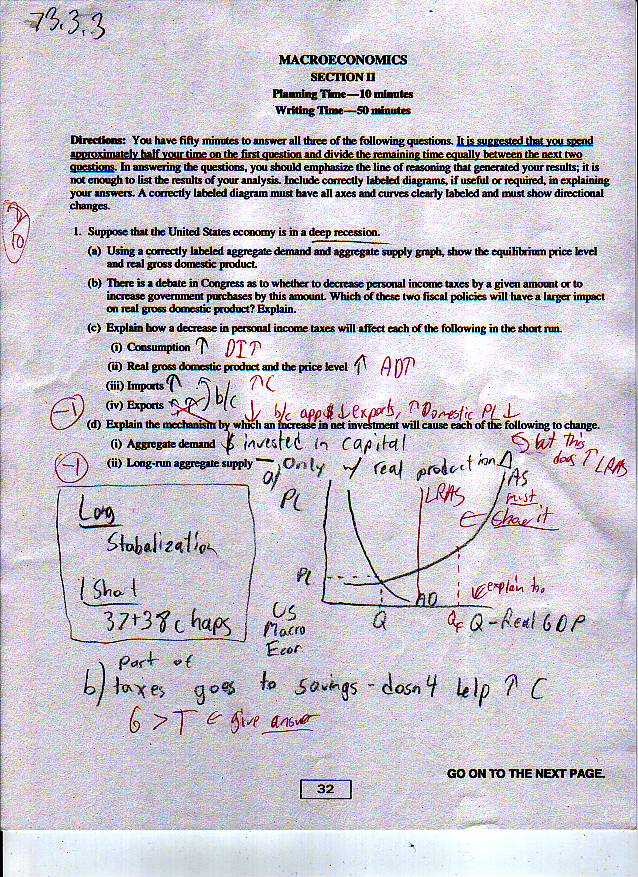 73.3.3
MACROECONOMICS
SECTION II
Planning Time—10 minutes
Writing Time—50 minutes
Directions: You have fifty minutes to answer all three of the following questions. It is suggested that you spend
approximately half your time on the first question and divide the remaining time equally between the next two
questions. In answering the questions, you should emphasize the line of reasoning that generated your results; it is
not enough to list the results of your analysis. Include correctly labeled diagrams, if useful or required, in explaining
your answers. A correctly labeled diagram must have all axes and curves clearly labeled and must show directional
changes.
1. Suppose that the United States economy is in a deep recession.
(a) Using a correctly labeled aggregate demand and aggregate supply graph, show the equilibrium price level
and real gross domestic product.
(b) There is a debate in Congress as to whether to decrease personal income taxes by a given amount or to
increase government purchases by this amount. Which of these two fiscal policies will have a larger impact
on real gross domestic product? Explain.
(c) Explain how a decrease in personal income taxes will affect each of the following in the short run.
(i) Consumption ↑ DI↑
(ii) Real gross domestic product and the price level ↑ AD↑
(iii) Imports ↑ b/c ↑C
(iv) Exports ↓ b/c app $ ↓ exports, ↑ Domestic PL ↓
-1
(d) Explain the mechanism by which an increase in net investment will cause each of the following to change.
(i) Aggregate demand $ invested in capital
but this
does ↑ LRAS
-1
(ii) Long-run aggregate supply – Only w/ real production Δ
a)
PL
LRAS
AS
must
← show it
Long
Stabalization
Short
37+38 chaps
PL
AD
explain
Q
QF
Q - Real GDP
US
Macro
Econ
part of
b) taxes goes to savings - dosn4 help ↑ C
G > T ← give answer
GO ON TO THE NEXT PAGE.
32